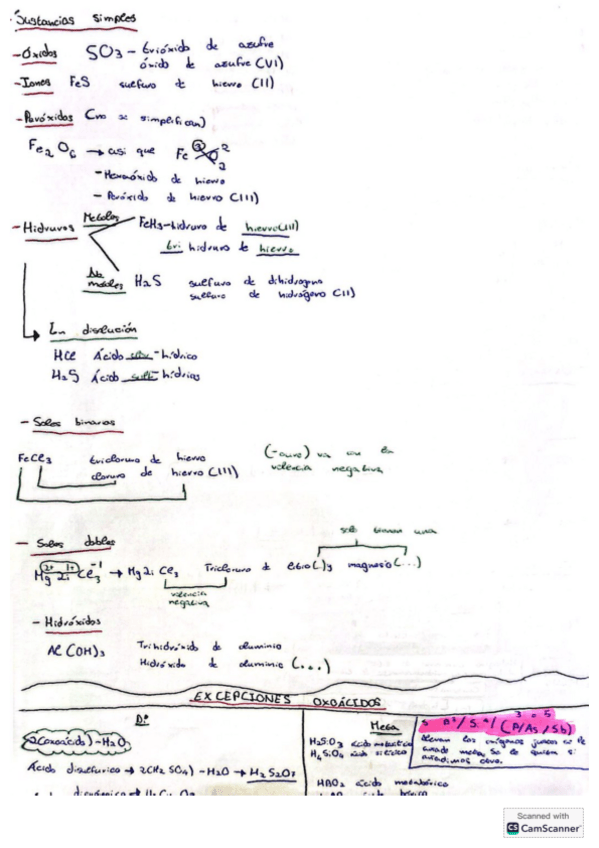 Sustancias simples
- Óxidos SO3 - trióxido de azufre
óxido de azufre (VI)
- Iones FeS sulfuro de hierro (II)
- Peróxidos (no se simplifican)
Fe2O6 → así que Fe O 2
- Hexaóxido de hierro
- Peróxido de hierro (III)
- Hidruros Metales FeH3 - hidruro de hierro (III)
tri hidruro de hierro
No metales H2S sulfuro de dihidrogeno
sulfuro de hidrógeno (II)
En disolución
HCl Ácido - hídrico
H2S Ácido sulf - hídrico
- Sales binarias
FeCl3 tricloruro de hierro (-uro) va con la
cloruro de hierro (III) valencia negativa
- Sales dobles
Mg Li Cl3 -1 → MgLiCl3 Tricloruro de litio (.) y magnesio (...)
valencia
negativa
- Hidróxidos
Al(OH)3 Trihidróxido de aluminio
Hidróxido de aluminio (...)
EXCEPCIONES OXOÁCIDOS
Di
2(oxoácido) - H2O
Ácido disulfúrico → 2(H2SO4) - H2O → H2S2O7
Meta
H2SiO3 ácido metasilícico
H4SiO4 ácido silícico
HBO2 ácido metabórico
3 o 5
(P/As/Sb)
Scanned with
CS CamScanner